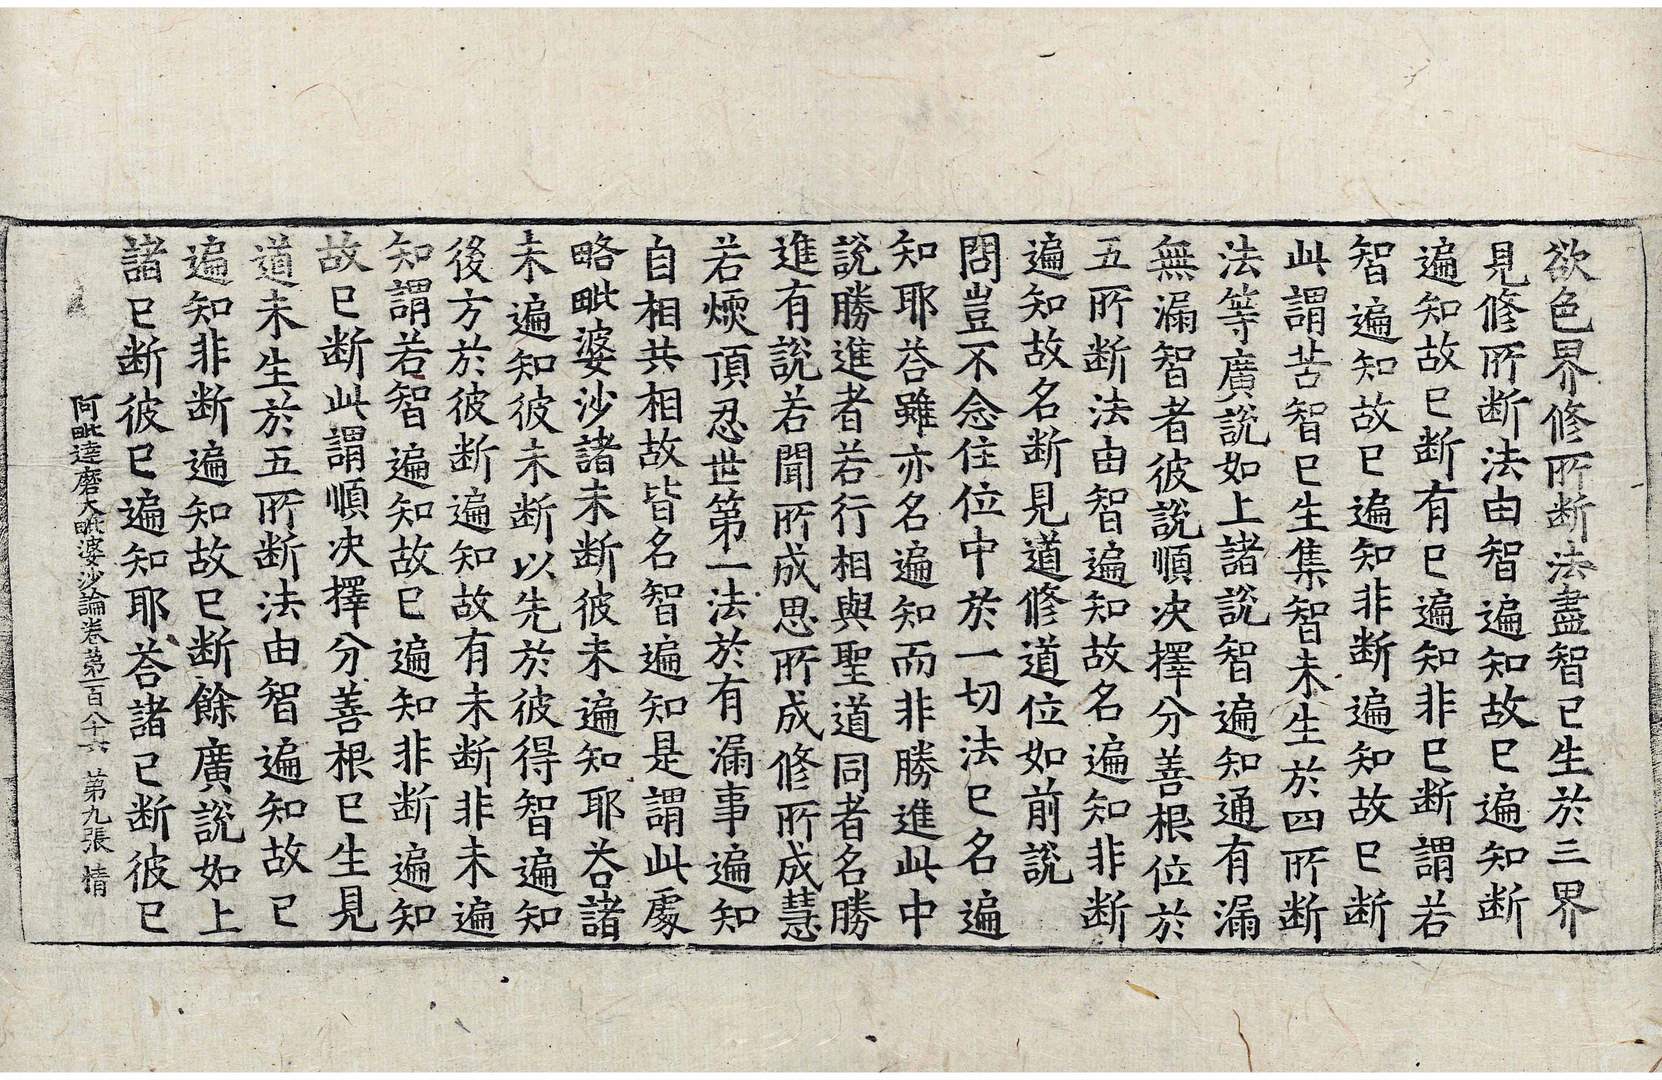 欲色界修所断法盡智已生於三界
見修所断法由智遍知故已遍知断
遍知故已断有已遍知非已断謂若
智遍知故已遍知非断遍知故已断
此謂苦智已生集智未生於四所断
法等廣說如上諸說智遍知通有漏
無漏智者彼說順决擇分善根位於
五所断法由智遍知故名遍知非断
遍知故名断見道修道位如前說
問豈不念住位中於一切法已名遍
知耶荅雖亦名遍知而非勝進此中
說勝進者若行相與聖道同者名勝
進有說若聞所成思所成修所成慧
若煗頂忍世第一法於有漏事遍知
自相共相故皆名智遍知是謂此處
略毗婆沙諸未断彼未遍知耶荅諸
未遍知彼未断以先於彼得智遍知
後方於彼断遍知故有未断非未遍
知謂若智遍知故已遍知非断遍知
故已断此謂順决擇分善根已生見
道未生於五所断法由智遍知故已
遍知非断遍知故已断餘廣說如上
諸已断彼已遍知耶荅諸已断彼已
阿毗達磨大毗婆沙論卷第一百八十六 第九張 情